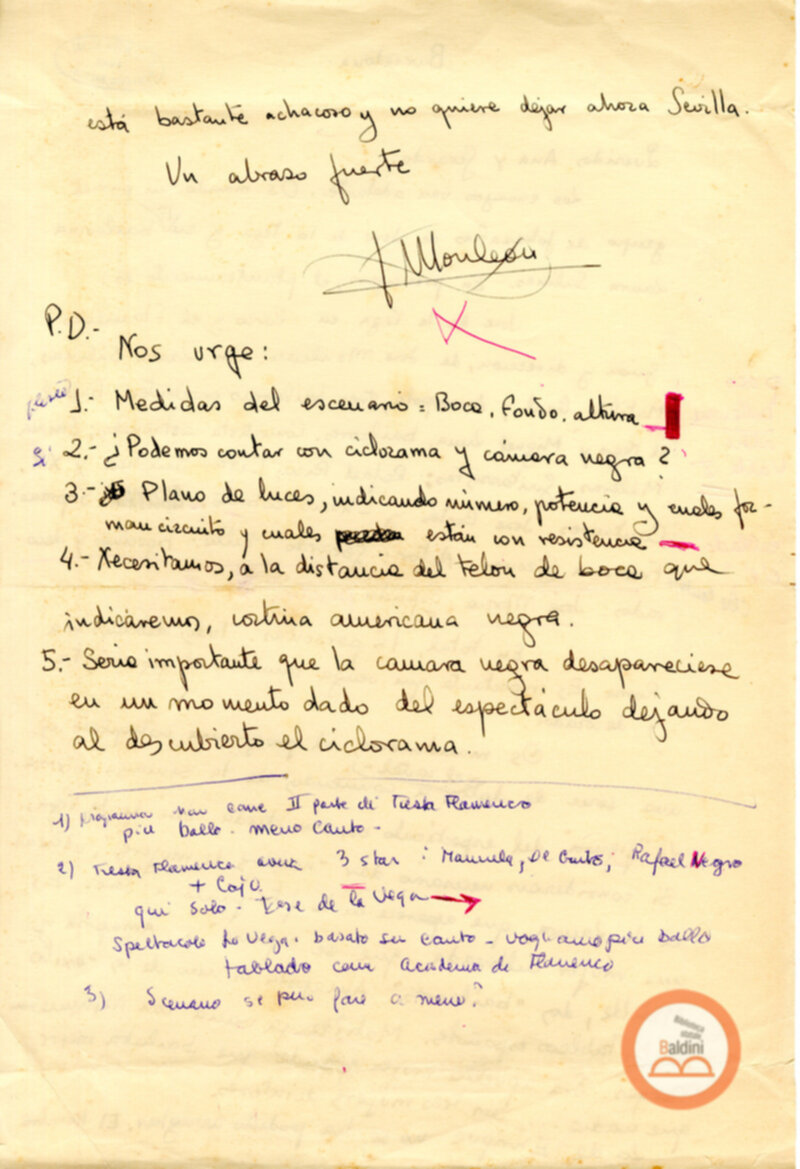 está bastante achacoso y no quiere dejar ahora Sevilla.
Un abraso fuerte
J Monleón
P.D.-
Nos urge:
1.- Medidas del escenario: Boca, fondo, altura
si 2.- ¿Podemos contar con ciclorama y cámara negra?
3.- Plano de luces, indicando número, potencia y cuales for-
man circuito y cuales están con resistencia
4.- Necesitamos, a la distancia del telon de boca que
indicáremos, cortina americana negra.
5.- Seria importante que la camara negra desapareciese
en un momento dado del espectáculo dejando
al descubierto el ciclorama.
1) Programma non come II parte di Fiesta Flamenco
più ballo - meno canto -
2) Fiesta Flamenco aveva 3 star: Manuela, De Cordo, Rafael Negro
+ Cojo
qui solo - Jose de la Vega
Spettacolo La Vega: basato su canto - vogliamo più ballo
tablado come Academia de Flamenco
3) Scenario se può fare a meno?
Biblioteca
statale
Baldini